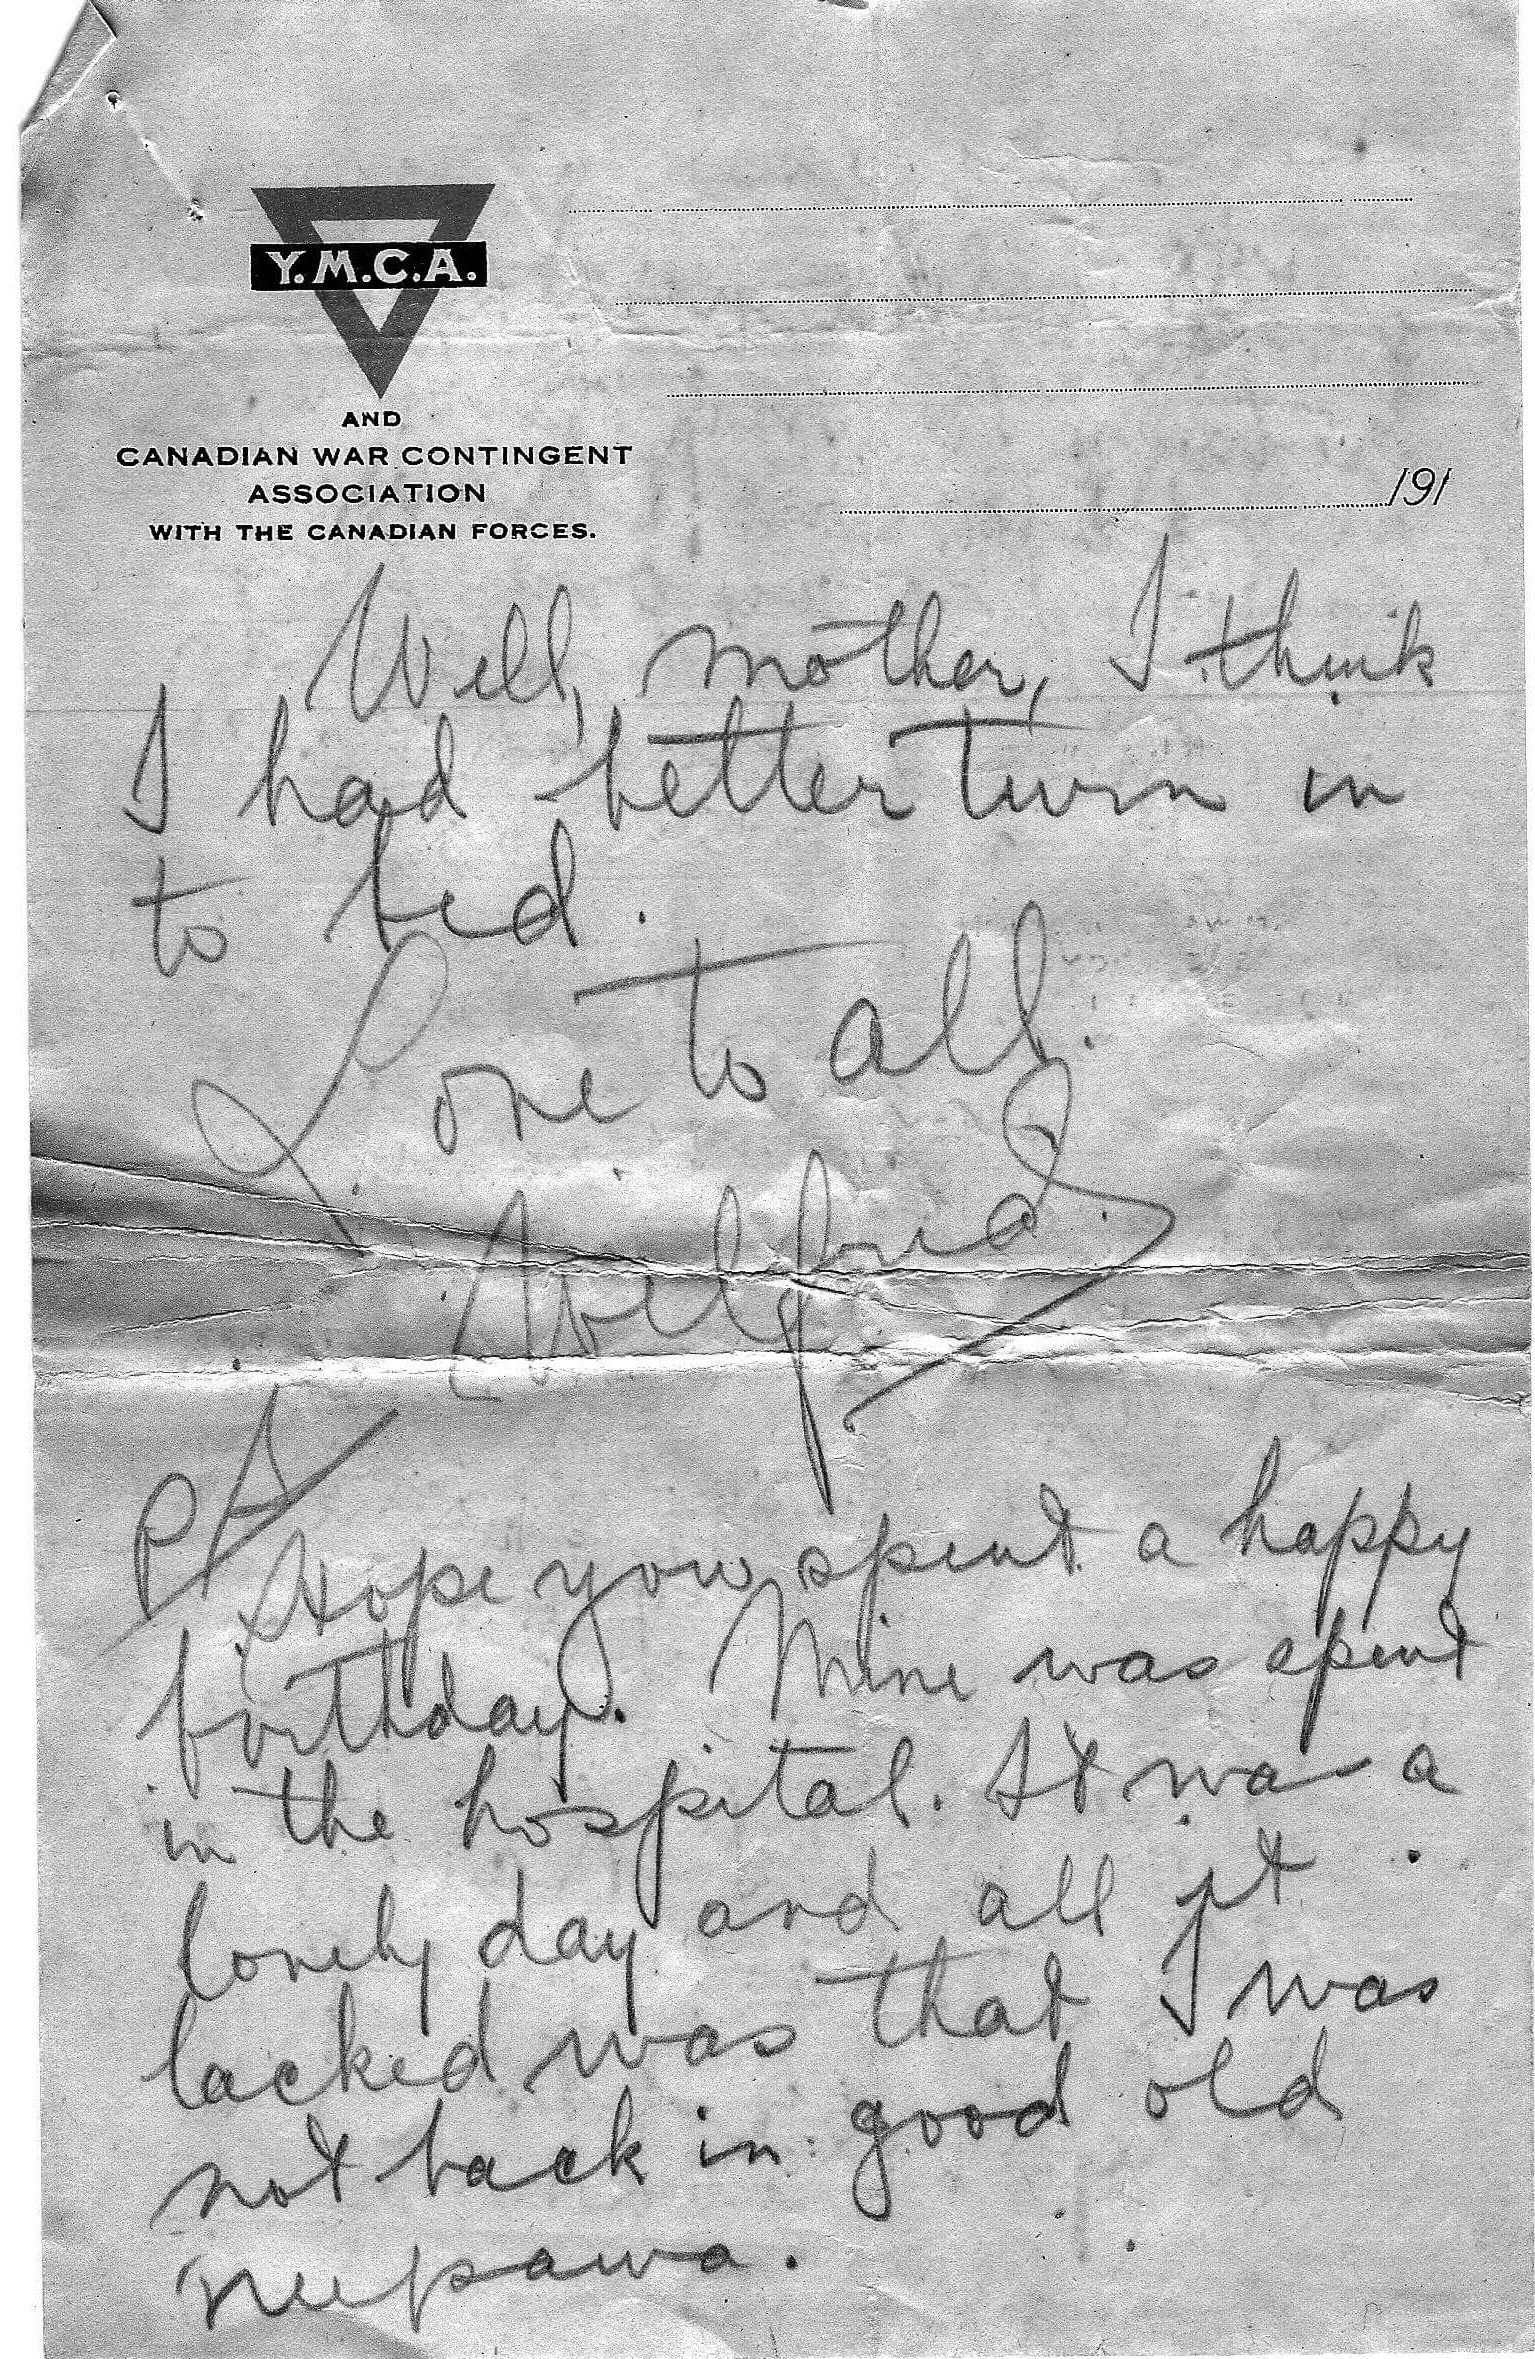 Y.M.C.A.
AND
CANADIAN WAR CONTINGENT
ASSOCIATION
WITH THE CANADIAN FORCES.
191
Well, mother, I think
I had better turn in
to bed.
Love to all.
Wilfrid
PS
Hope you spent a happy
birthday. Mine was spent
in the hospital. It was a
lonely day and all it
lacked was that I was
not back in good old
neepawa.